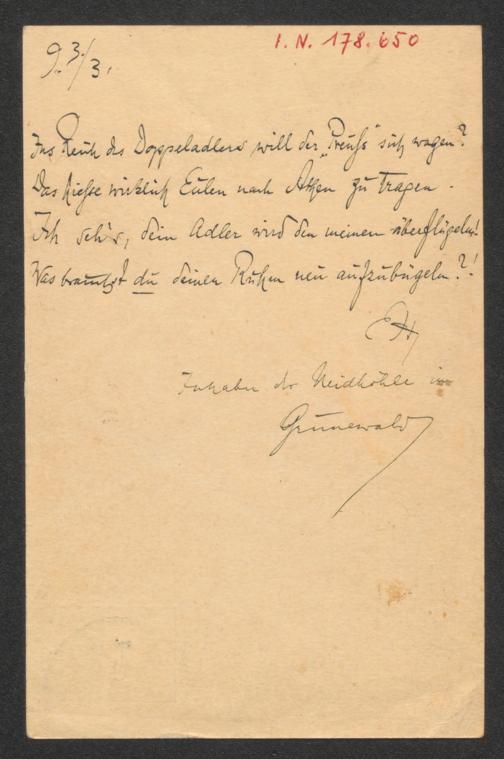 I. N. 178.650
9. 3./3.
Ins Reich des Doppeladlers will der „Preuße“ sich wagen?
Das hieße wirklich Eulen nach Athen zu tragen.
Ich seh's, dein Adler wird den meinen überflügeln!
Was brauchst du deinen Ruhm neu aufzubügeln?!
EH
Inhaber der Neidhöhle im
Grunewald